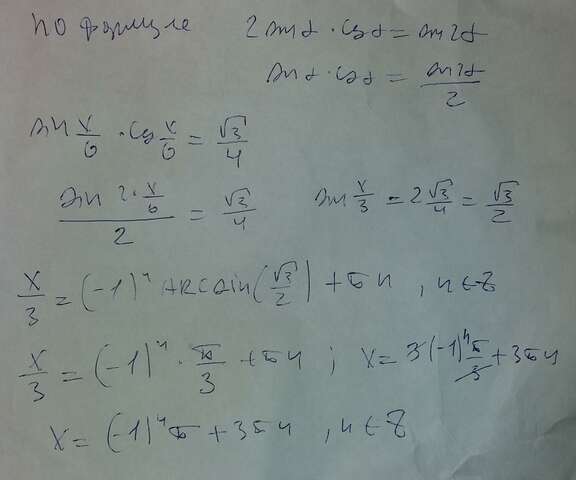 по формуле 2sinα · cosα = sin2α
sinα · cosα = sin2α/2
sin x/6 · cos x/6 = √3/4
(sin 2·x/6)/2 = √3/4 sin x/3 = 2√3/4 = √3/2
x/3 = (-1)ⁿ arcsin(√3/2) + πn , n ∈ Z
x/3 = (-1)ⁿ · π/3 + πn ; x = 3(-1)ⁿ π/3 + 3πn
x = (-1)ⁿπ + 3πn , n ∈ Z